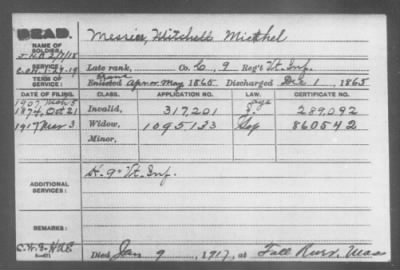 DEAD.
NAME OF SOLDIER: Mesrier, Mitchell Micthel
SERVICE: Late rank, Co. G, 9 Reg't Vt. Inf.
TERM OF SERVICE: Trans Enlisted Apr or May, 1865. Discharged Dec 1, 1865
DATE OF FILING. CLASS. APPLICATION NO. LAW. CERTIFICATE NO.
1907
1874, Oct 21 Invalid, 317,201 age 289,092
1917 Mar 3 Widow, 1095133 860542
Minor,
ADDITIONAL SERVICES: K. 9" Vt. Inf.
REMARKS:
Died Jan 9, 1917, at Fall River, Mass